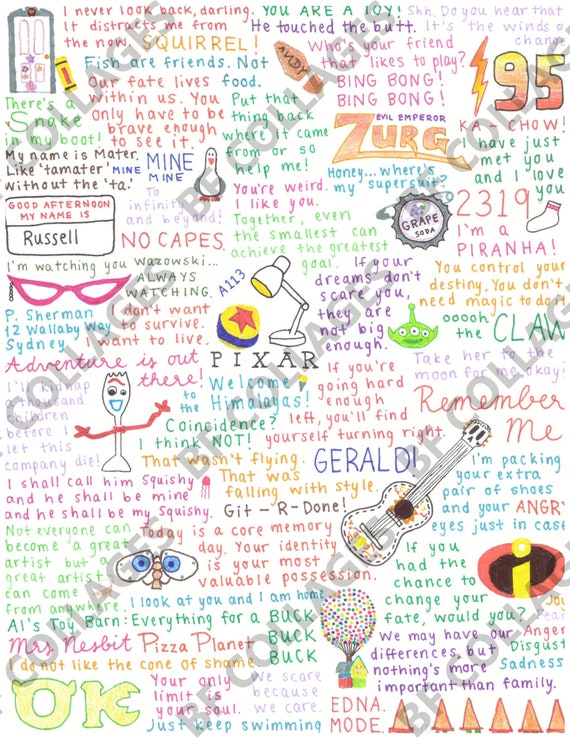 I never look back, darling.
It distracts me from
the now.
SQUIRREL!
YOU ARE A TOY!
He touched the butt.
Shh. Do you hear that
It's the winds o
change
Fish are friends. Not
food.
ANDY
Who's your friend
that likes to play?
BING BONG!
BING BONG!
95
There's a
Snake
in my boot!
Our fate lives
within us. You
only have to
be brave enough
to see it.
Put that
thing back
where it came
from or so
help me!
EVIL EMPEROR
ZURG
KA-CHOW!
I have just
met you
and I love
you
My name is Mater.
Like 'tamater'
without the 'ta.'
MINE MINE
MINE
To
infinity
and beyond!
You're weird.
I like you.
Honey...where's
my supersuit?
GOOD AFTERNOON
MY NAME IS
Russell
NO CAPES.
Together, even
the smallest can
achieve the greatest
goal.
GRAPE
SODA
2319
I'm a
PIRANHA!
I'm watching you Wazowski...
ALWAYS
WATCHING.
A113
If your
dreams don't
scare you,
they are
not big
enough.
You control your
destiny. You don't
need magic to do it
P. Sherman
12 Wallaby Way
Sydney
I don't want
to survive.
I want to live.
PIXAR
ooooh
the CLAW
Adventure is out
there!
Take her to the
moon for me, okay!
I'll kidnap
a thousand
children
before I
let this
company die!
Welcome
to the
Himalayas!
If you're
going hard
enough
left, you'll find
yourself turning right.
Remember
Me
Coincidence?
I think NOT!
That wasn't flying.
That was
falling with style.
GERALD!
I'm packing
your extra
pair of shoes
and your ANGRY
eyes just in case
I shall call him Squishy
and he shall be mine
and he shall be my Squishy.
Git-R-Done!
Not everyone can
become a great
artist but a
great artist
can come
from anywhere.
Today is a core memory
day. Your identity
is your most
valuable possession.
If you
had the
chance to
change
your
fate, would you?
i
I look at you and I am home
Joy
Fear
Anger
Disgust
Sadness
Al's Toy Barn: Everything for a BUCK
BUCK
BUCK
Mrs Nesbit
Pizza Planet
I do not like the cone of shame
We may have our
differences, but
nothing's more
important than family.
OK
Your only
limit is
your soul.
We scare
because
we care.
EDNA.
MODE.
Just keep swimming
BF COLLAGES